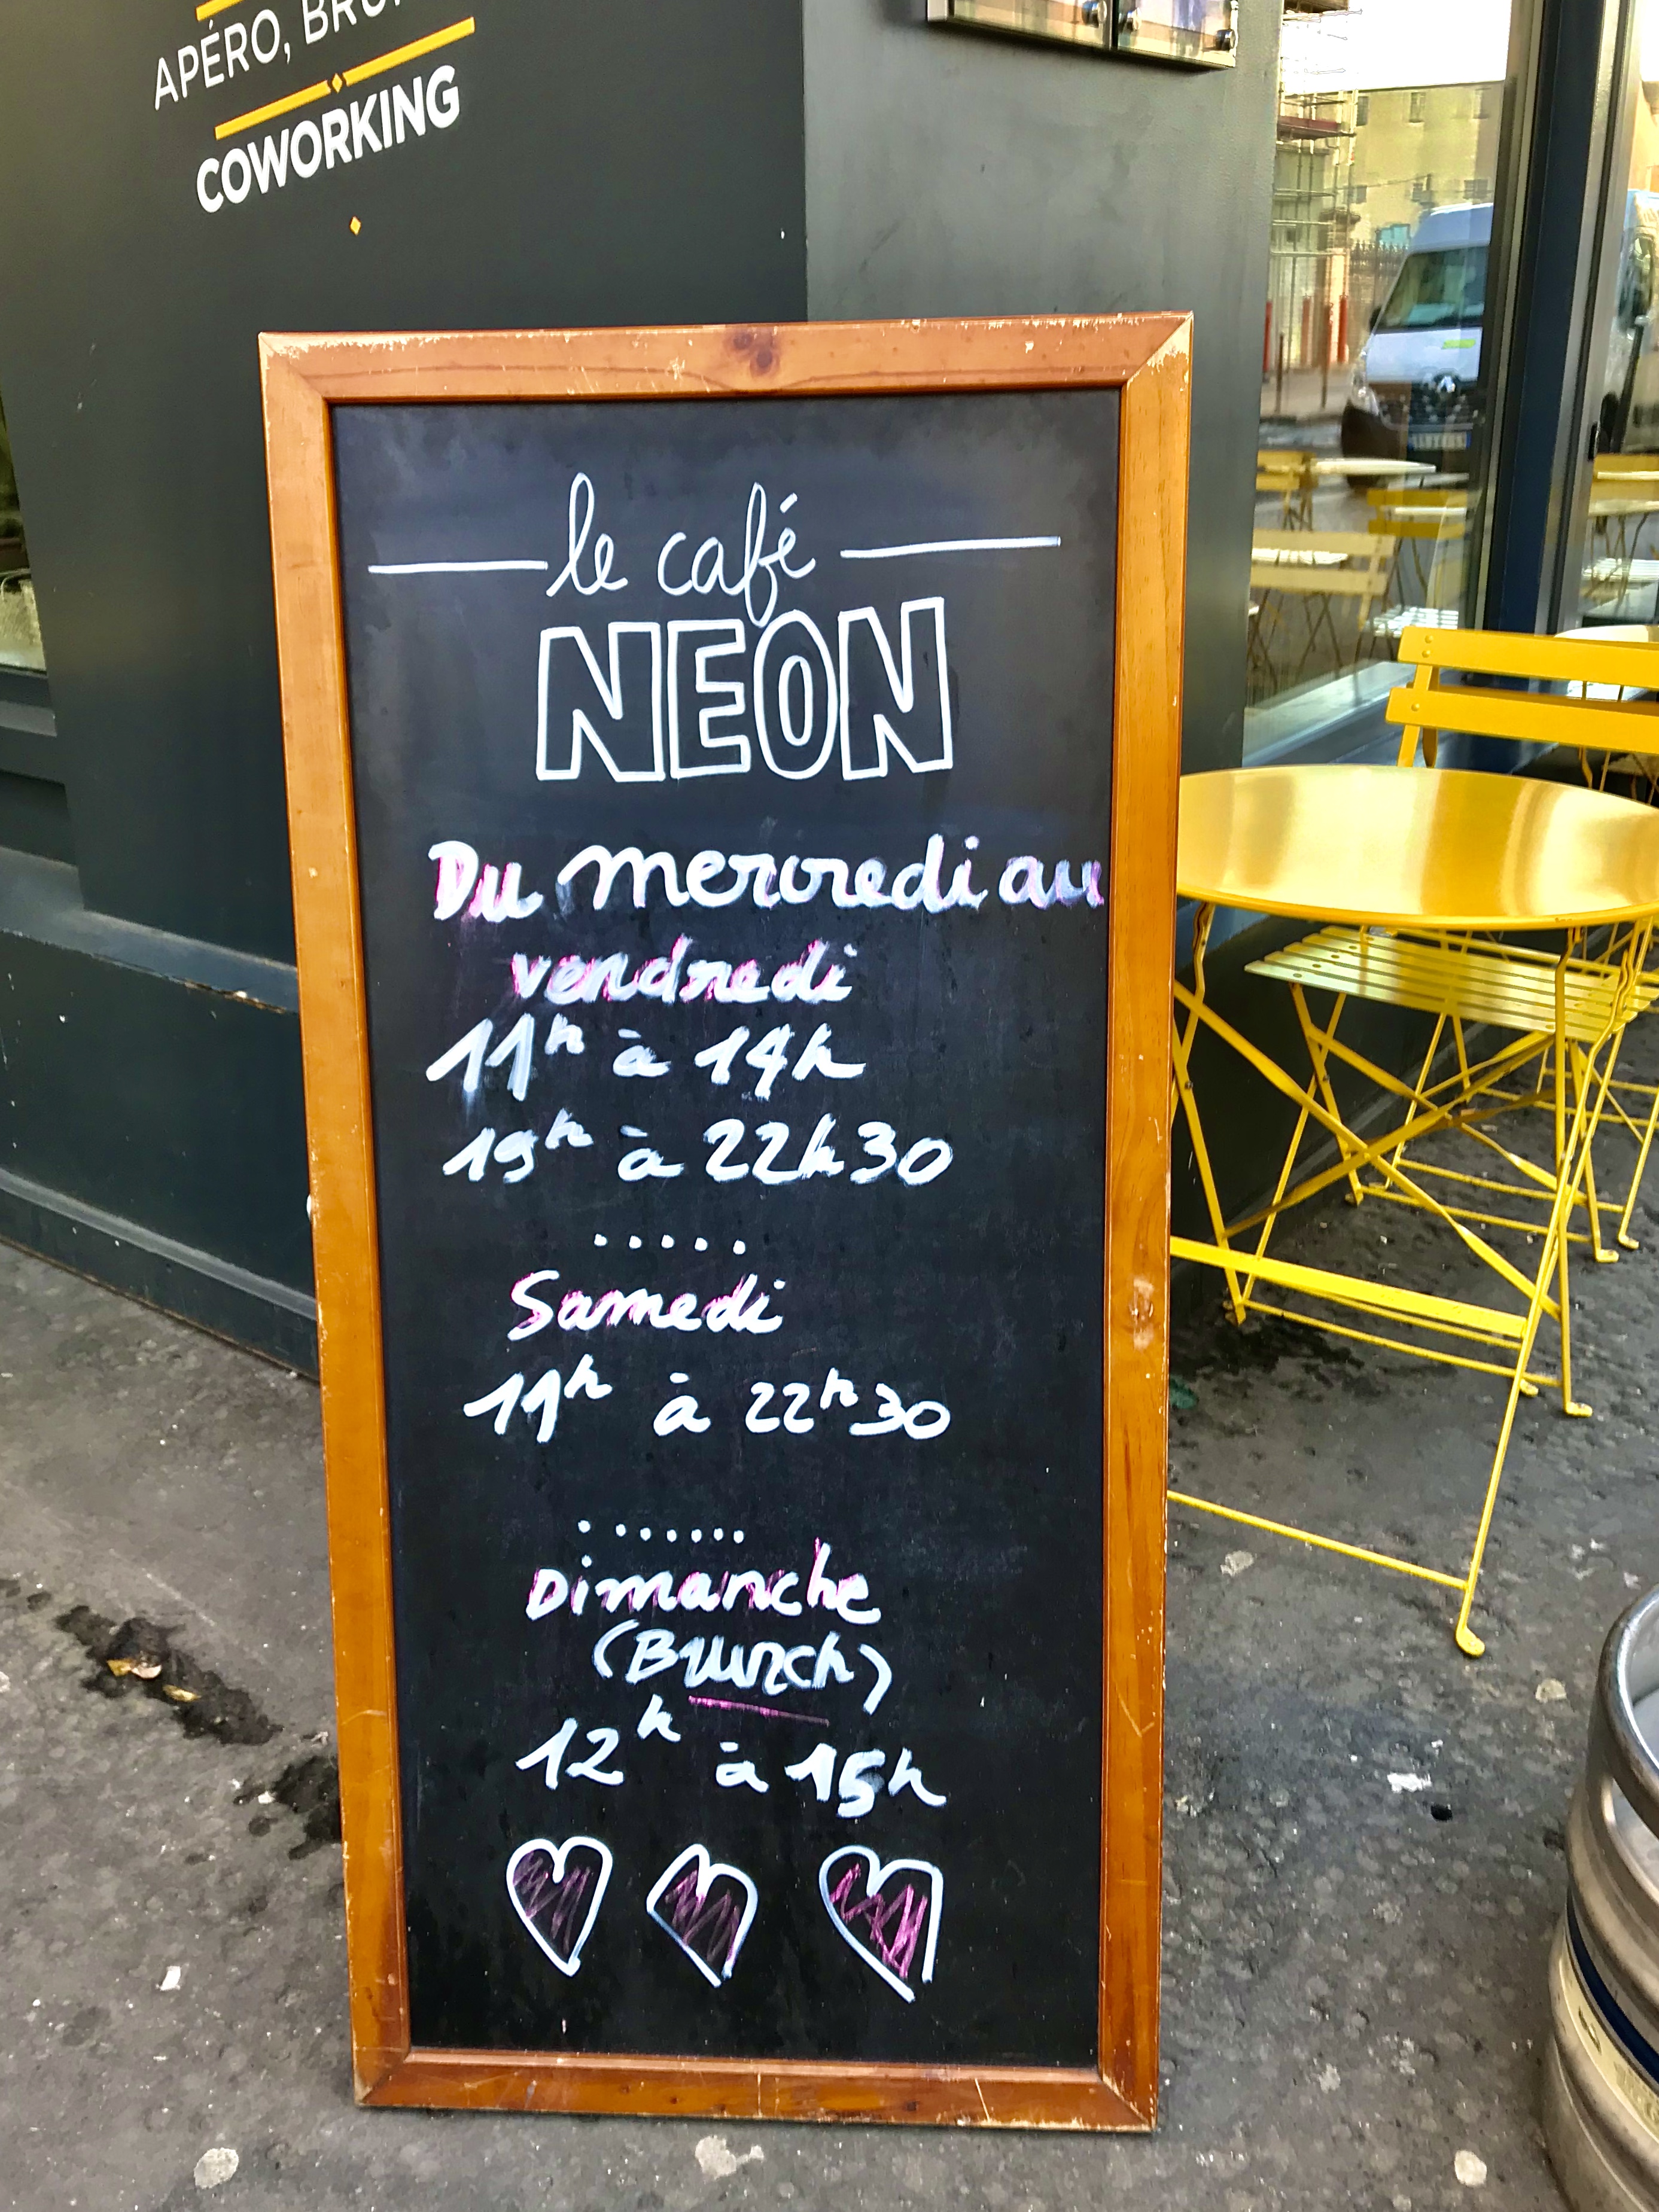 APÉRO,
COWORKING
le café
NEON
Du mercredi au
vendredi
11h à 14h
19h à 22h30
.....
Samedi
11h à 22h30
.......
Dimanche
(Brunch)
12h à 15h